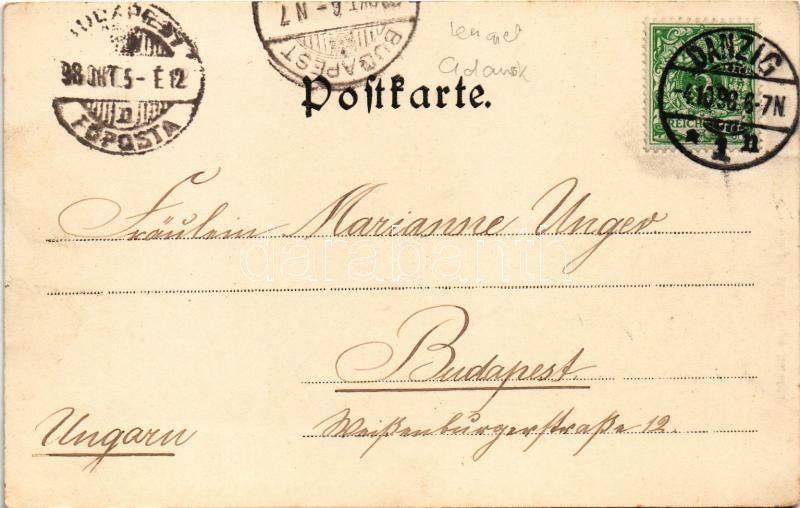 BUDAPEST
98 OKT. 5 - É 12
n
FŐPOSTA
OKT. 6 - N 7
BUDAPEST
lengyel
Gdansk
DANZIG
-4.10.98.6-7N
* 1 n
REICHSPOST
Poſtkarte.
Fräulein Marianne Unger
darabanth
Budapest
Ungarn
Weißenburgerstraße 12.